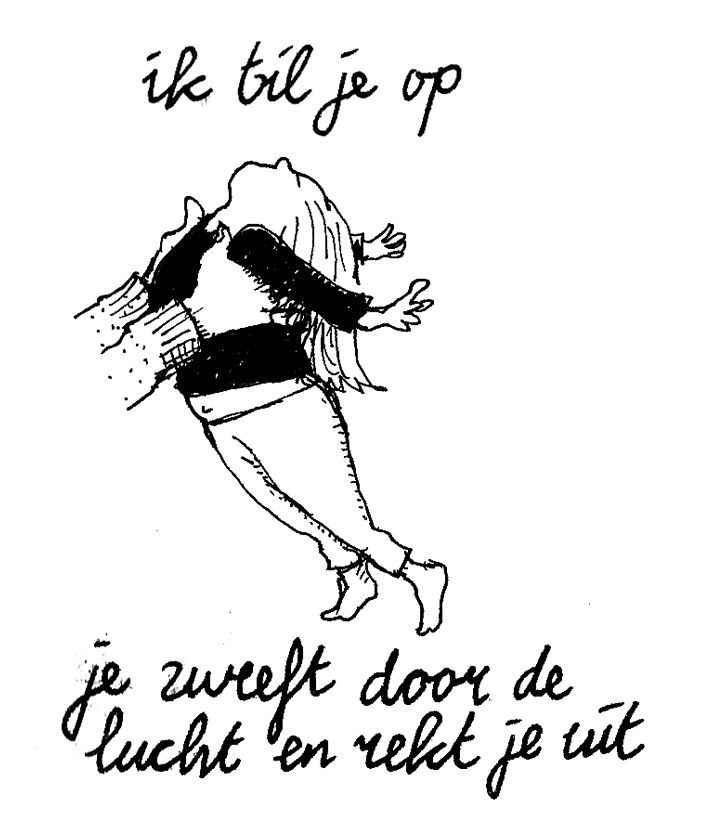 ik til je op
je zweeft door de
lucht en rekt je uit